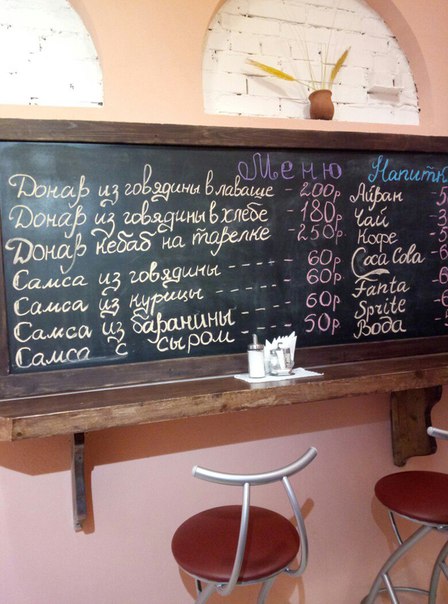 Меню
Донар из говядины в лаваше - 200р
Донар из говядины в хлебе - 180р
Донар кебаб на тарелке - 250р.
Самса из говядины ----- 60р
Самса из курицы ----- 60р
Самса из баранины ---- 60р
Самса с сыром ---- 50р
Напитк
Айран
Чай
Кофе
Coca Cola
Fanta
Sprite
Вода